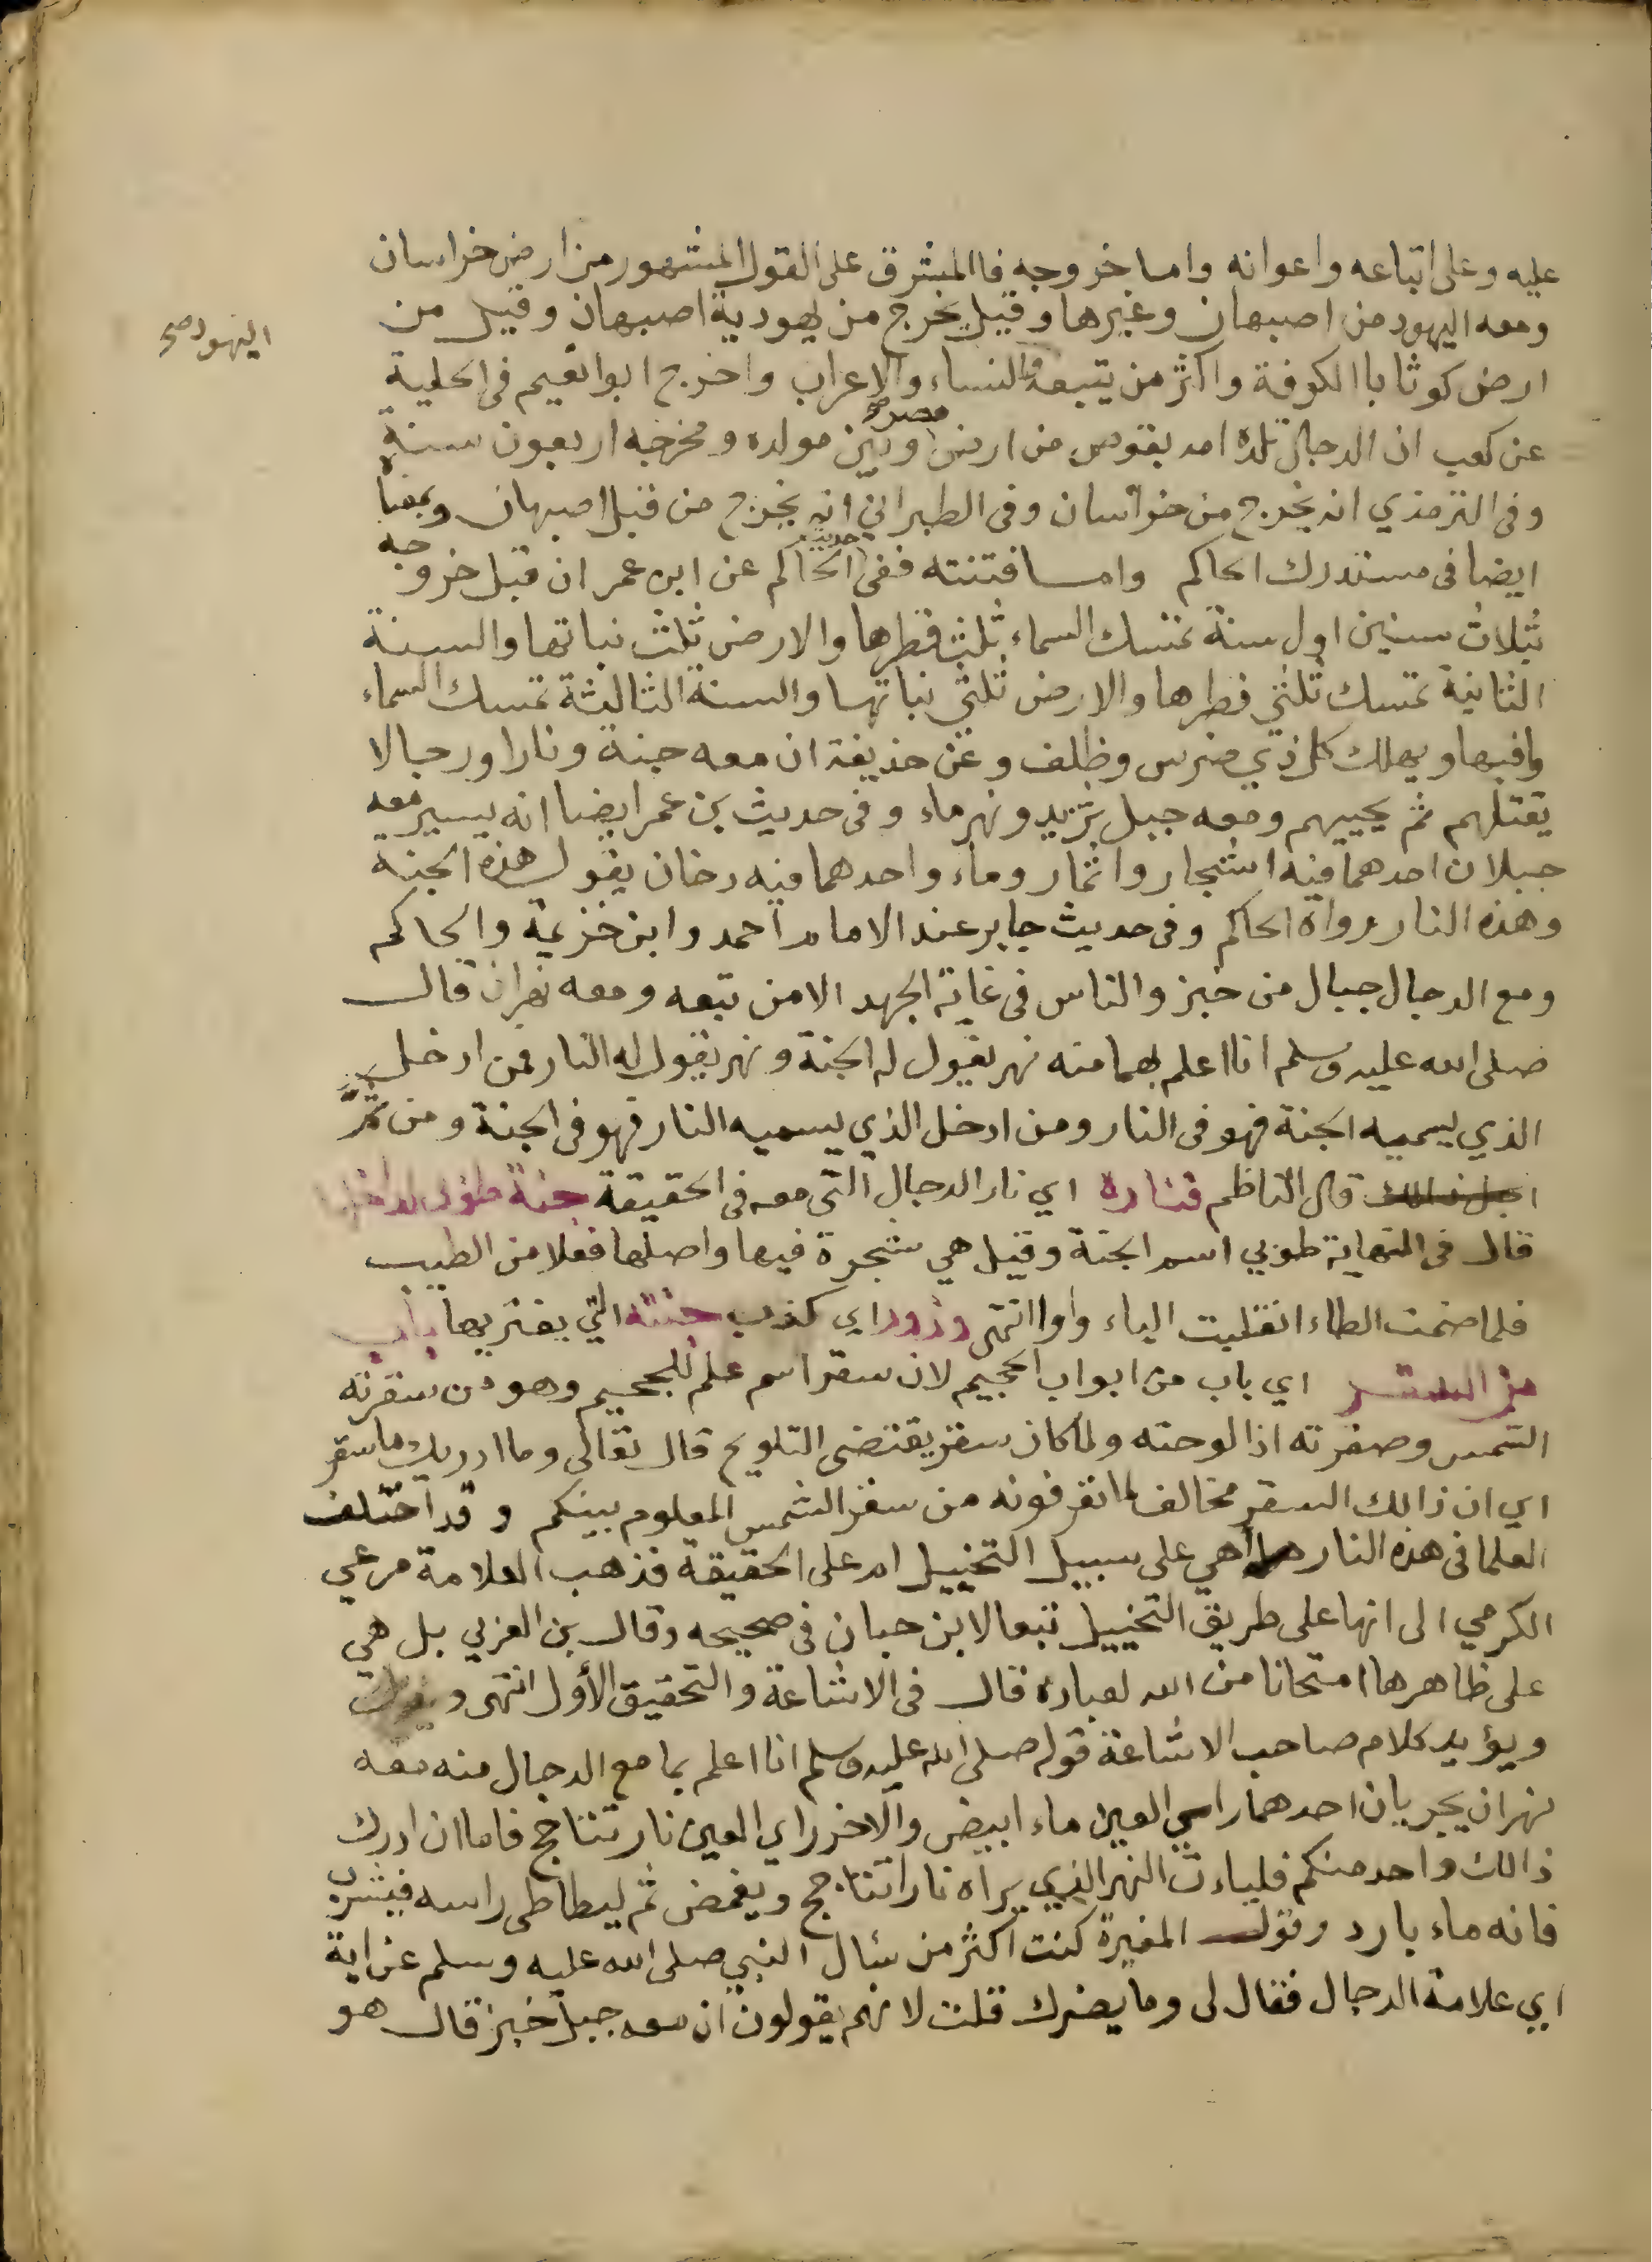 عليه وعلى اتباعه واعوانه واما خروجه فاالمشرق على القول المشهور من ارض خراسان
ومعه اليهود من اصبهان وغيرها وقيل يخرج من يهودية اصبهان وقيل من
اليهود صح
ارض كوثا باالكوفة واكثر من يتبعه والنساء والاعراب واخرج ابوا نعيم فى الحلية
عن كعب ان الدجال تلده امه بقوص من ارض مصر صح وبين مولده ومخرجه اربعون سنة
وفى الترمذي انه يخرج من خراسان وفى الطبراني انه يخرج من قبل اصبهان وبمعناه
ايضا فى مستدرك الحاكم واما فتنته ففى حديث الحاكم عن ابن عمر ان قبل خروجه
ثلاث سنين اول سنة تمسك السماء ثلث قطرها والارض ثلث نباتها والسنة
الثانية تمسك ثلثي قطرها والارض ثلثي نباتها والسنة الثالثة تمسك السماء
مافيها ويهلك كل ذي ضرس وظلف وعن حذيفة ان معه جنة ونارا ورجالا
يقتلهم ثم يحييهم ومعه جبل ثريد ونهر ماء وفى حديث بن عمر ايضا انه يسير معه
جبلان احدهما فيه اشجار واثمار وماء واحدهما فيه دخان يقول هذه الجنة
وهذه النار رواه الحاكم وفى حديث جابر عند الامام احمد وابن خزيمة والحاكم
ومع الدجال جبال من خبز والناس فى غاية الجهد الا من تبعه ومعه نهران قال
صلى الله عليه وسلم انا اعلم بهما منه نهر يقول له الجنة ونهر يقول له النار فمن ادخل
الذي يسميه الجنة فهو فى النار ومن ادخل الذي يسميه النار فهو فى الجنة ومن ثمّ
اجل ذالك قال الناظم فناره اي نار الدجال التى معه فى الحقيقة جنة طوبى
قال فى النهاية طوبي اسم الجنة وقيل هي شجرة فيها واصلها فعلا من الطيب
فلما ضمت الطاء انقلبت الياء واوا انتهى وزور اي كذب جنته التي يغتر بها باب
من السقر اي باب من ابواب الجحيم لان سقر اسم علم للجحيم وهو من سقرته
الشمس وصقرته اذا لوحته ولما كان سقر يقتضى التلويح قال تعالى وما ادريك ما سقر
اي ان ذالك السقر مخالف لما تعرفونه من سقر الشمس المعلوم بينكم وقد اختلف
العلما فى هذه النار هل هي على سبيل التخييل ام على الحقيقة فذهب العلامة مرعي
الكرمي الى انها على طريق التخييل تبعا لابن حبان فى صحيحه وقال بن العربي بل هي
على ظاهرها امتحانا من الله لعباده قال فى الاشاعة والتحقيق الأول انتهى
ويؤيد كلام صاحب الاشاعة قوله صلى الله عليه وسلم انا اعلم بما مع الدجال منه معه
نهران يجريان احدهما راى العين ماء ابيض والاخر راى العين نار تتاجج فاما ان ادرك
ذالك واحد منكم فلياءت النهر الذي يراه نارا تتاجج ويغمض ثم ليطاطى راسه فيشرب
فانه ماء بارد وقول المغيرة كنت اكثر من سئال النبي صلى الله عليه وسلم عن اية
اي علامة الدجال فقال لى وما يضرك قلت لانهم يقولون ان معه جبل خبز قال هو